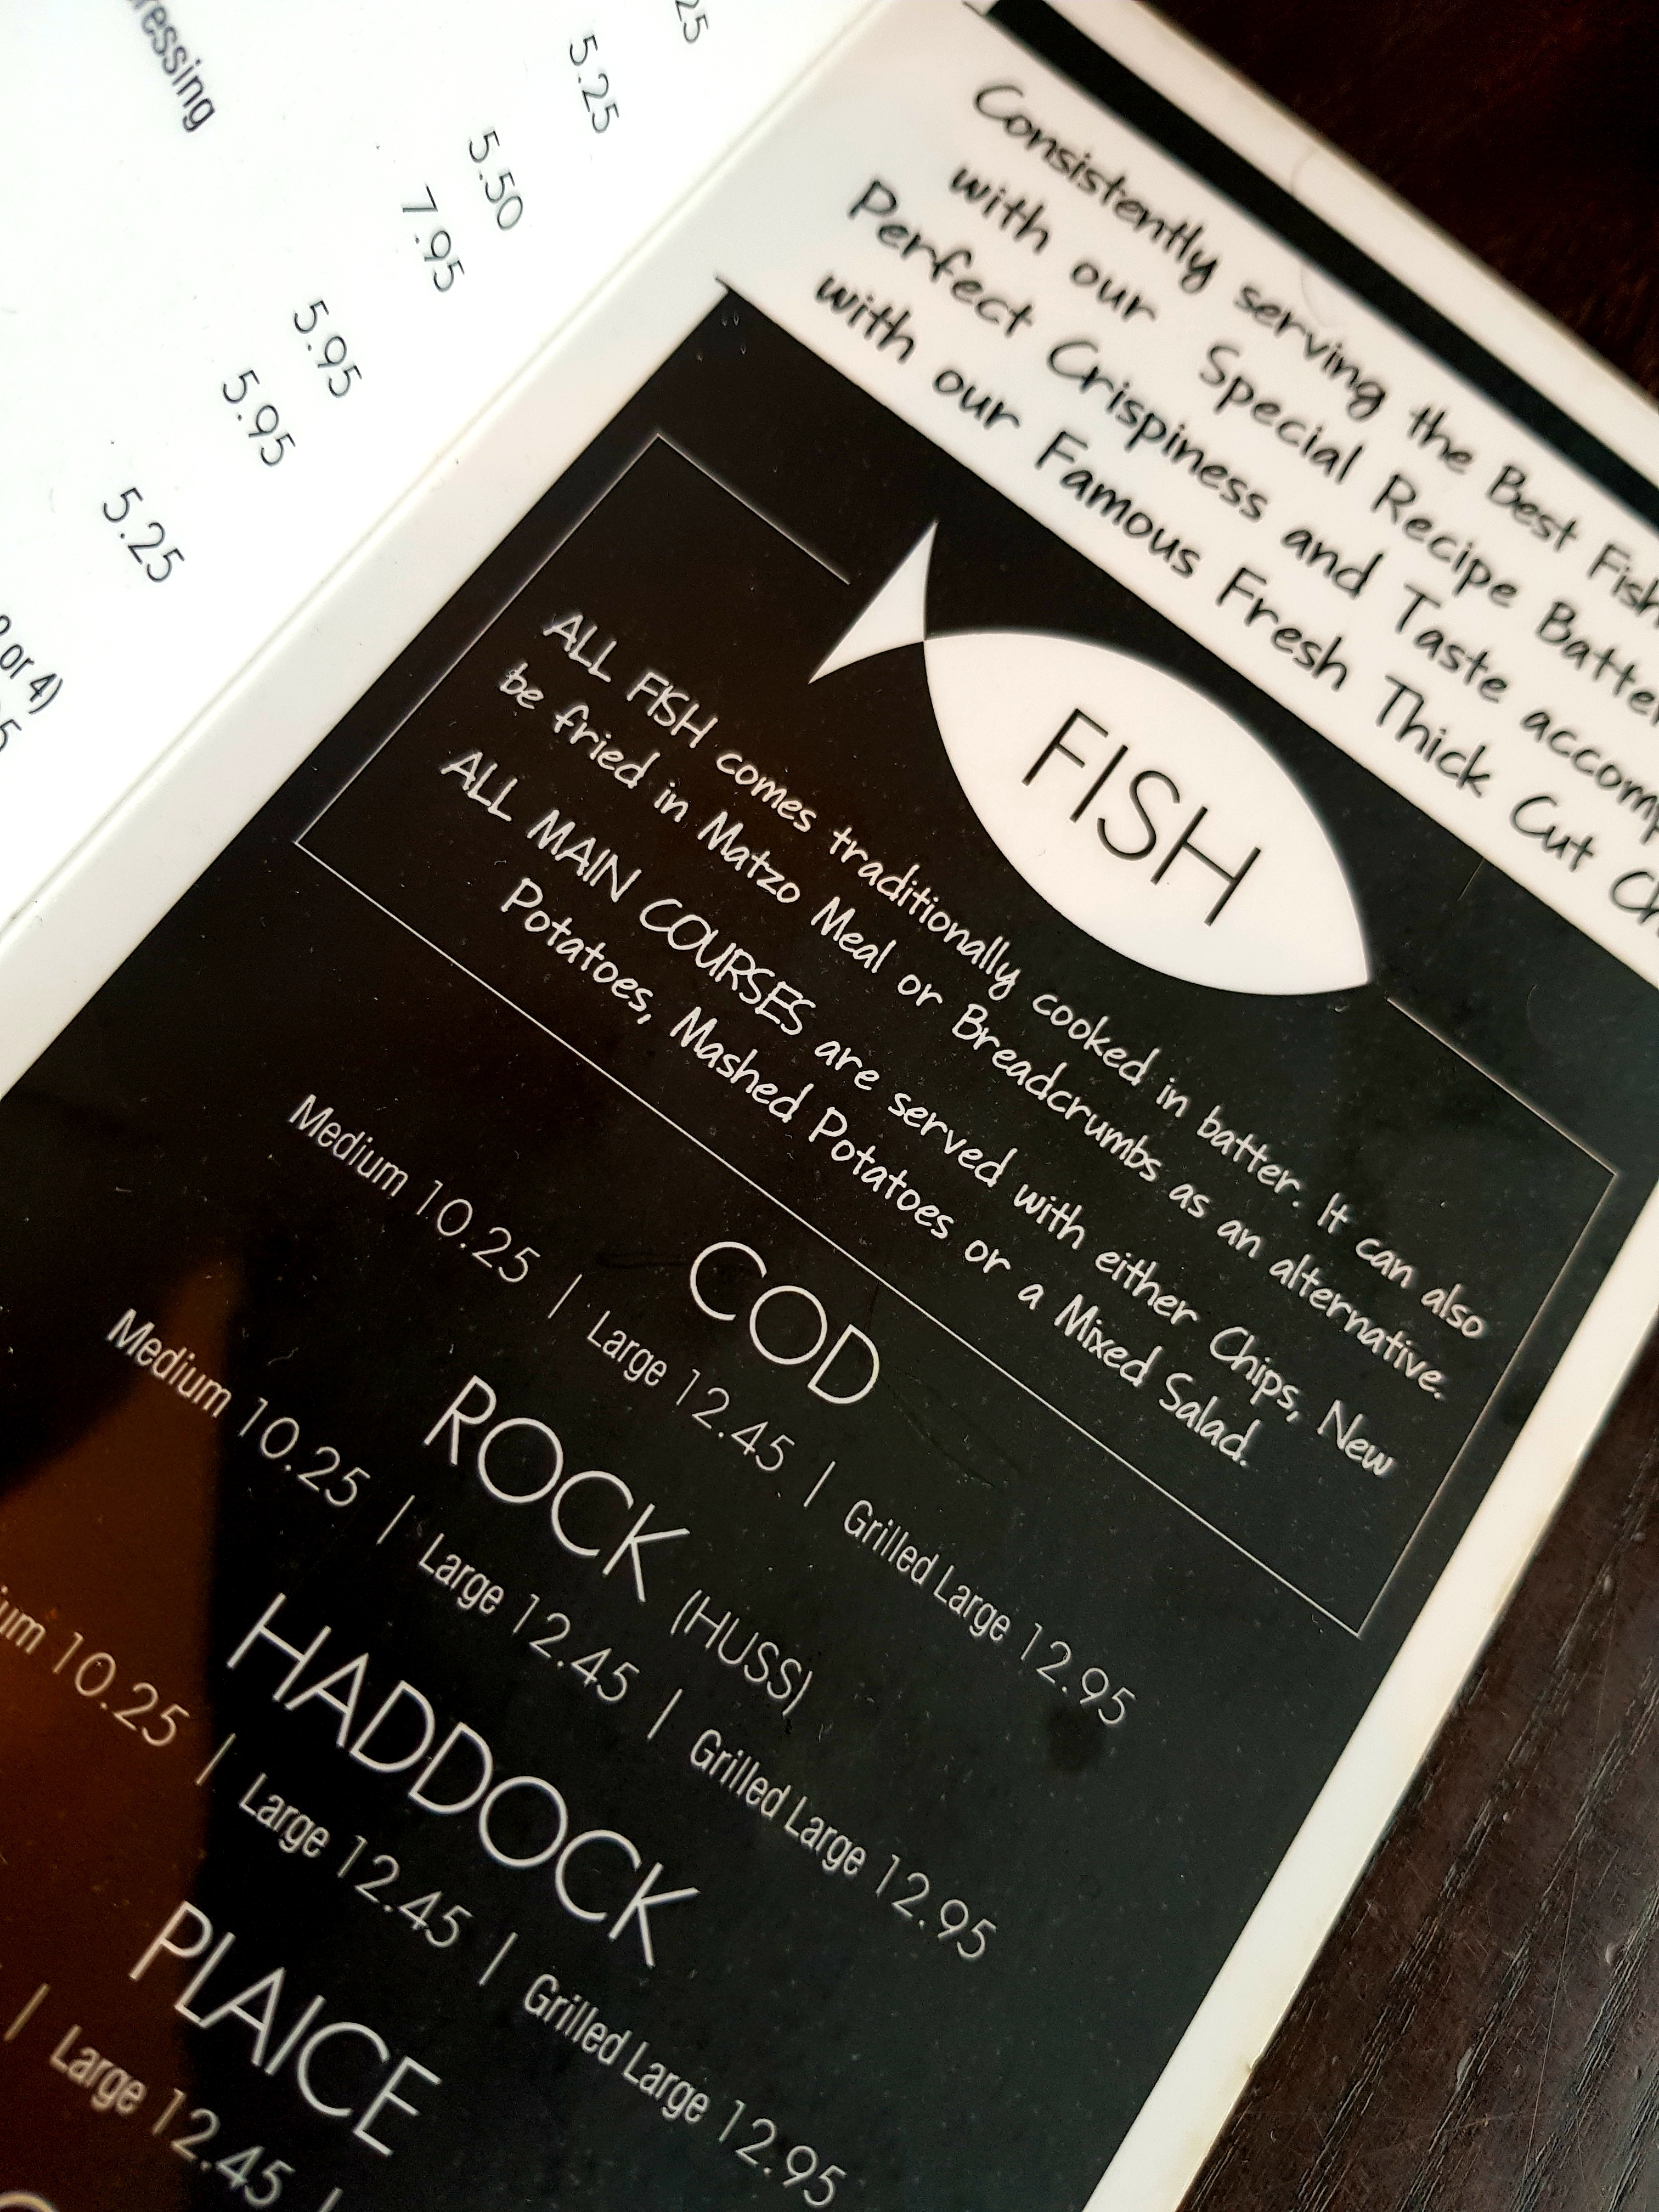 5.25
5.50
7.95
5.95
5.95
5.25
or 4)
Consistently serving the Best Fish
with our Special Recipe Batter
Perfect Crispiness and Taste
with our Famous Fresh Thick Cut
FISH
ALL FISH comes traditionally cooked in batter. It can also
be fried in Matzo Meal or Breadcrumbs as an alternative.
ALL MAIN COURSES are served with either Chips, New
Potatoes, Mashed Potatoes or a Mixed Salad.
COD
Medium 10.25 | Large 12.45 | Grilled Large 12.95
ROCK (HUSS)
Medium 10.25 | Large 12.45 | Grilled Large 12.95
HADDOCK
10.25 | Large 12.45 | Grilled Large 12.95
PLAICE
| Large 12.45 |